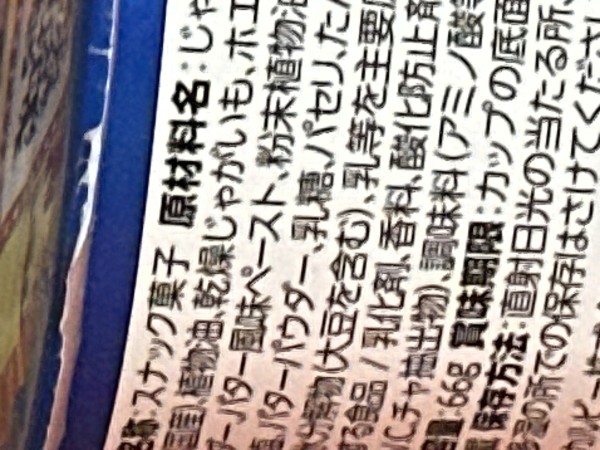 名称:スナック菓子 原材料名:じゃ
国産)、植物油、乾燥じゃがいも、ホエ
バター風味ペースト、粉末植物油
バターパウダー、乳糖、パセリ、たん
分解物(大豆を含む)、乳等を主要原
する食品 / 乳化剤、香料、酸化防止剤
V.C、チャ抽出物)、調味料(アミノ酸等
量:66g 賞味期限:カップの底面
保存方法:直射日光の当たる所、
多湿の所での保存はさけてくださ